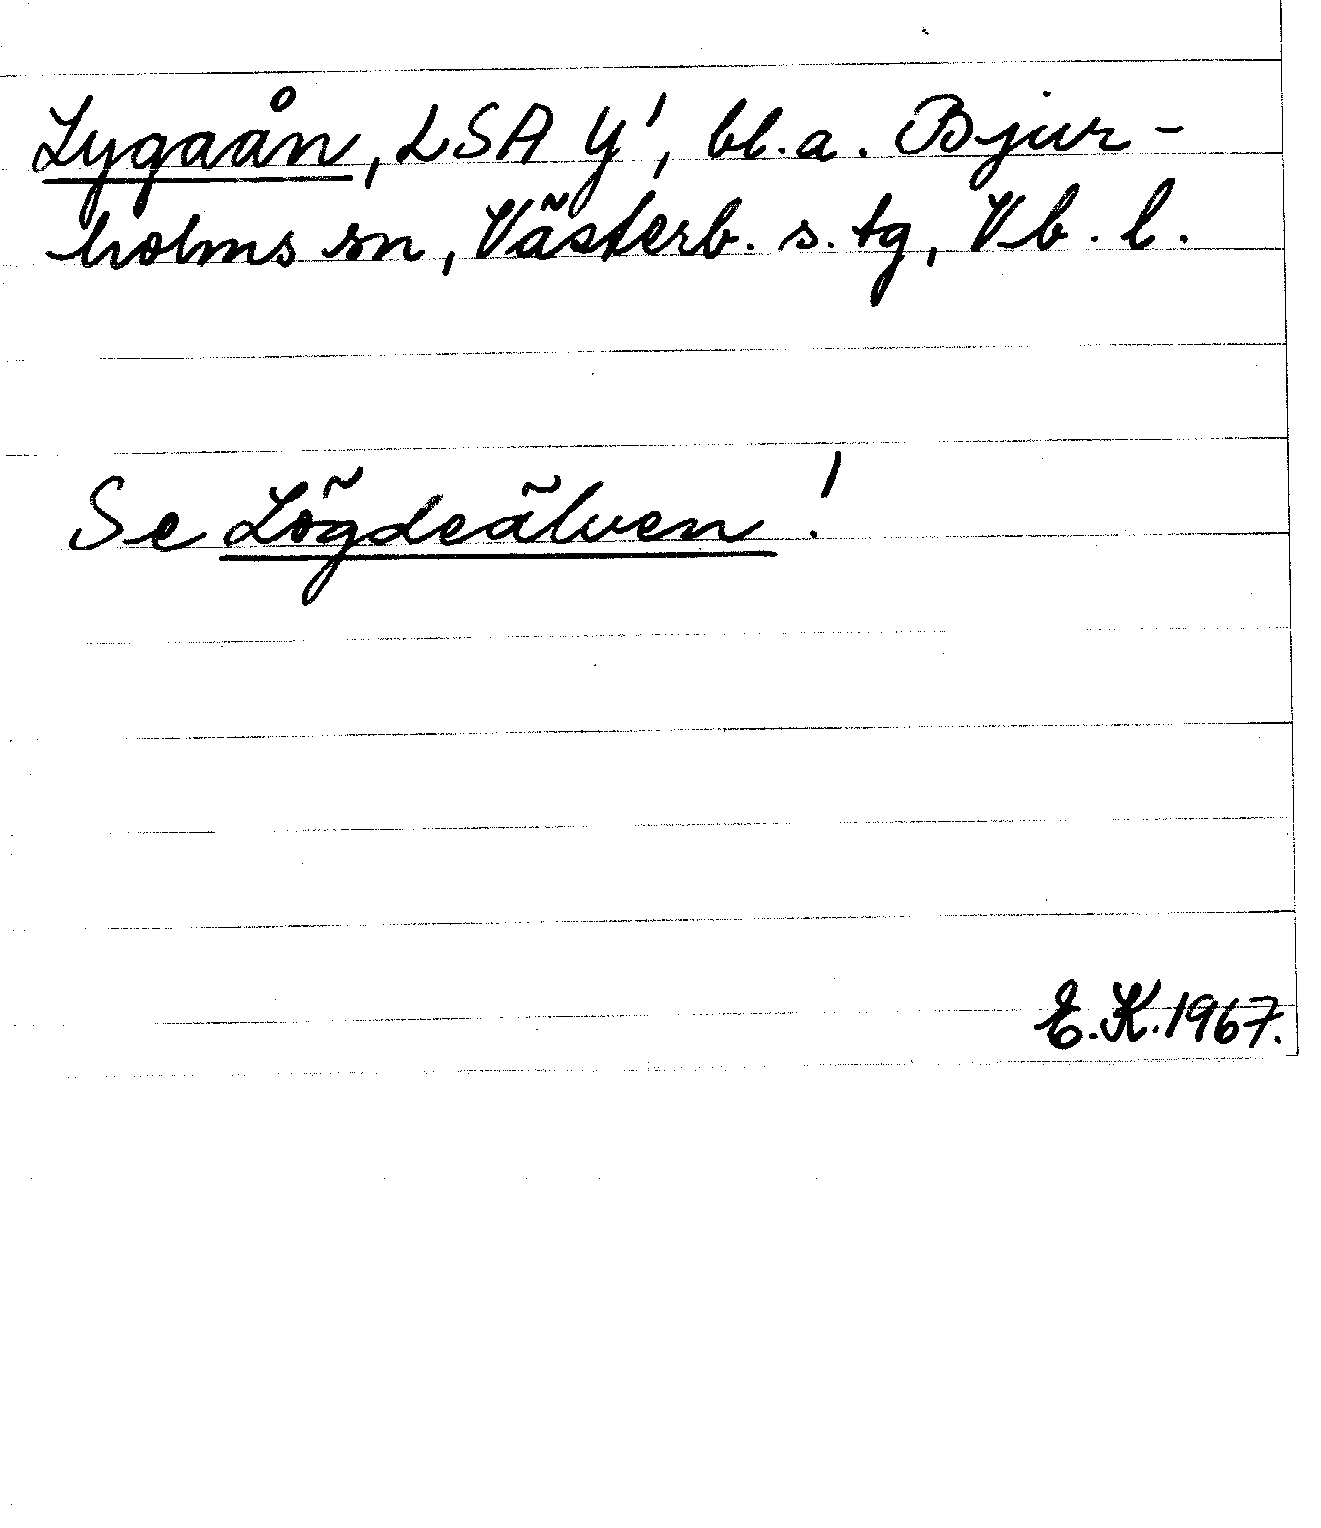 Lygaån, LSA Y', bl.a. Bjur-
holms sn, Västerb. s. tg, Vb. l.
Se Lögdeälven!
E.K. 1967.